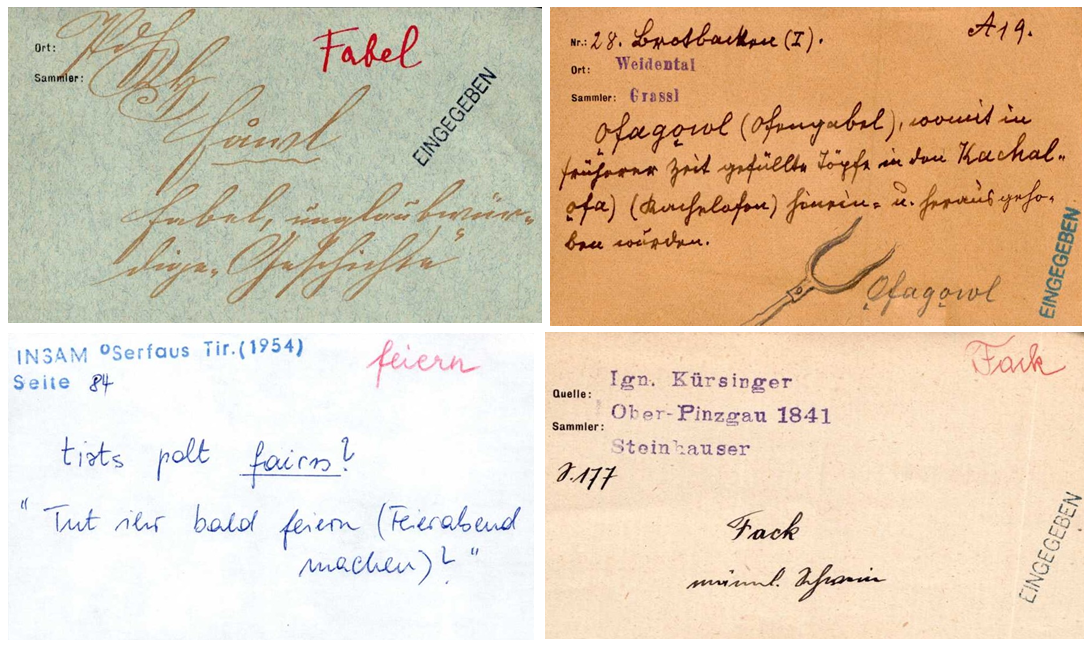 Ort:
Sammler:
Fabel
EINGEGEBEN
fåwl
Fabel, „unglaubwür-
dige Geschichte“
Nr.: 28. Brotbacken (I). A 19.
Ort: Weidental
Sammler: Grassl
Ǫfagǫwl (Ofengabel), womit in
früherer Zeit gefüllte Töpfe in den Kachal-
ǫfa) (Kachelofen) hinein- u. herausgeho-
ben wurden.
Ǫfagǫwl
EINGEGEBEN
INSAM ºSerfaus Tir.(1954)
Seite 84
feiern
tists polt fairn?
" Tut ihr bald feiern (Feierabend
machen)? "
Fack
Quelle: Ign. Kürsinger
Ober-Pinzgau 1841
Sammler: Steinhauser
S. 177
Fack
männl. Schwein
EINGEGEBEN